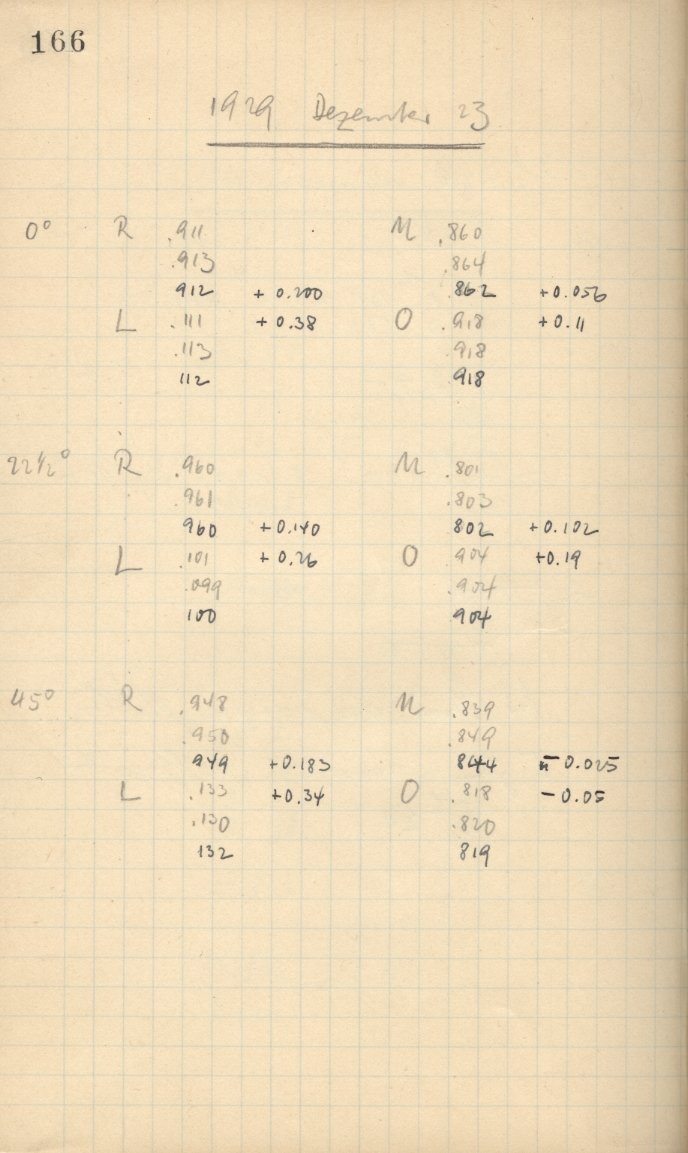 166
1929 Dezember 23
0° R .911 M .860
.913 .864
912 + 0.200 .862 +0.056
L .111 + 0.38 O .918 +0.11
.113 .918
112 918
22½° R .960 M .801
.961 .803
960 +0.140 802 +0.102
L .101 + 0.26 O 904 +0.19
.099 .904
100 904
45° R .948 M .839
.950 .849
949 +0.183 844 - 0.025
L .133 +0.34 O .818 - 0.05
.130 .820
132 819